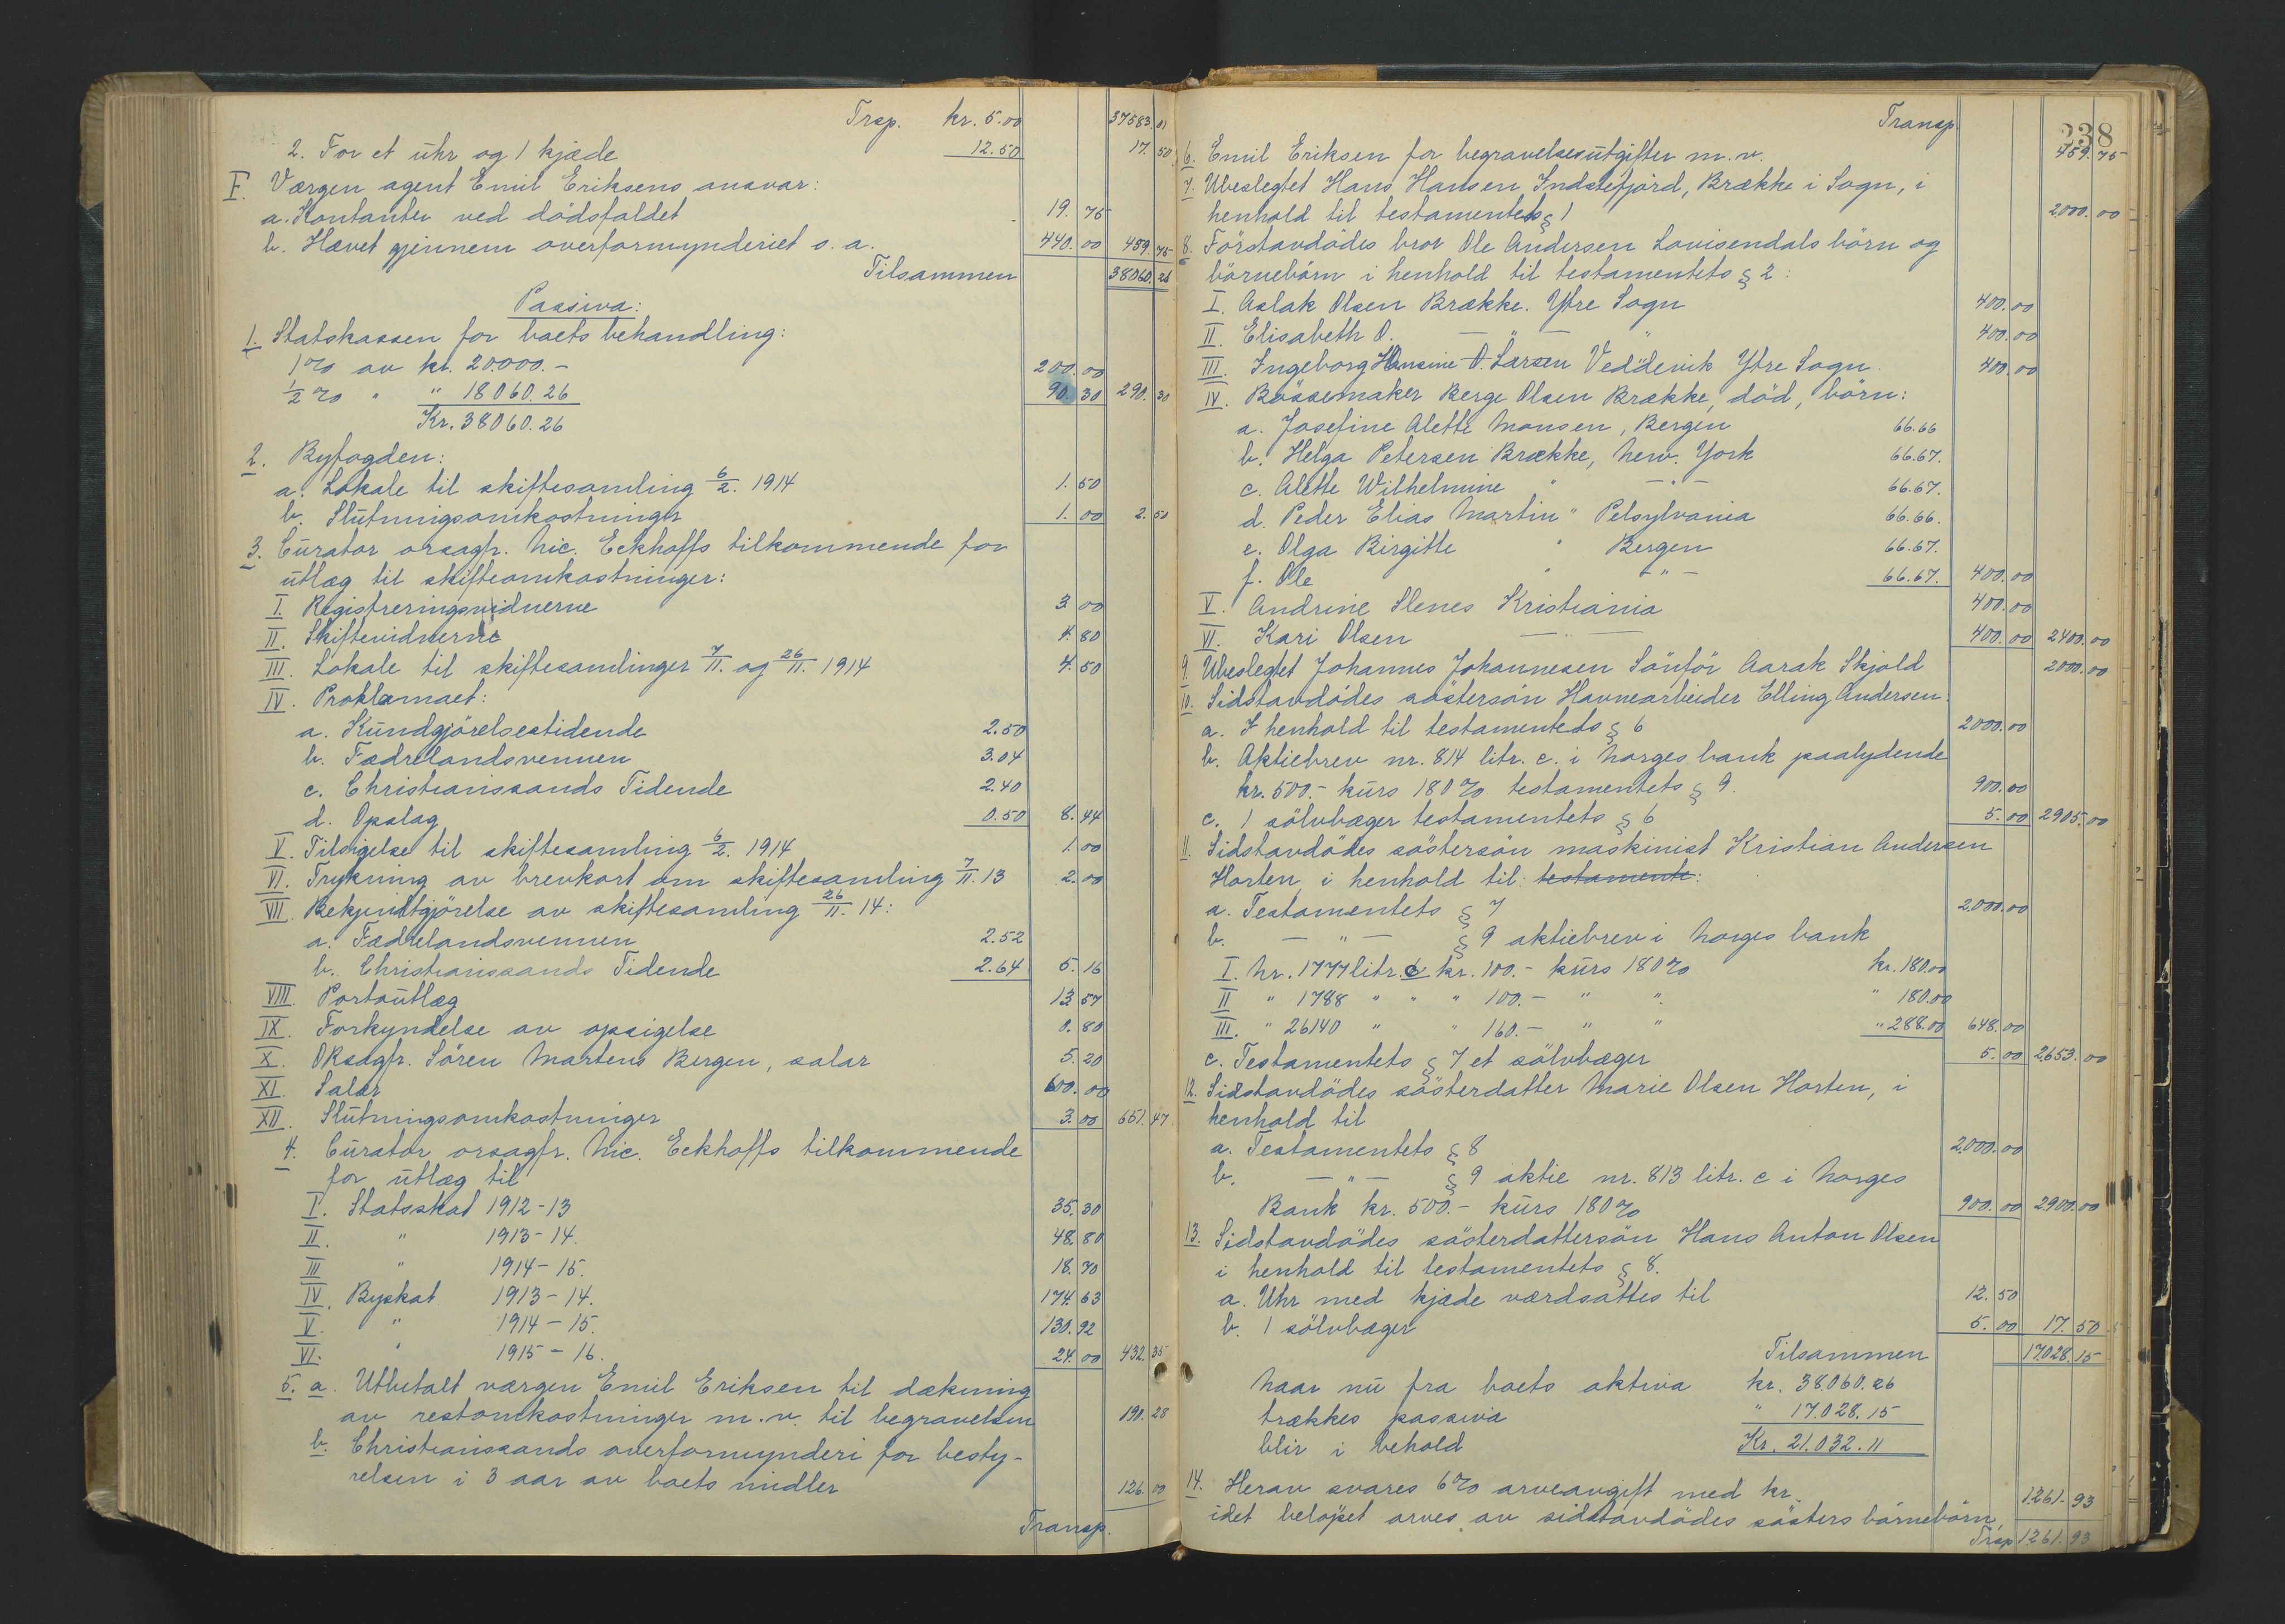 Trsp. kr. 5.00 37583.01
2. For et uhr og 1 kjæde 12.50 17.50
F. Værgen agent Emil Eriksens ansvar:
a. Kontanter ved dödsfaldet 19.75
b. Hævet gjennem overformynderiet s. a. 440.00 459.75
Tilsammen 38060.26
Passiva:
1. Statskassen for boets behandling:
1% av kr. 20.000.- 200.00
1/2% " " 18060.26 90.30 290.30
Kr. 38060.26
2. Byfogden:
a. Lokale til skiftesamling 6/2. 1914 1.50
b. Slutningsomkostninger 1.00 2.50
3. Curator orsagfr. Nic. Eckhoffs tilkommende for
utlæg til skifteomkostninger:
I. Registreringsvidnerne 3.00
II. Skiftevidnerne 4.80
III. Lokale til skiftesamlinger 7/11. og 26/11 1914 4.50
IV. Proklamaet:
a. Kundgjörelsestidende 2.50
b. Fædrelandsvennen 3.04
c. Christianssands Tidende 2.40
d. Opslag 0.50 8.44
V. Tilsigelse til skiftesamling 6/2. 1914 1.00
VI. Trykning av brevkort om skiftesamling 7/11. 13 2.00
VII. Bekjendtgjörelse av skiftesamling 26/11. 14:
a. Fædrelandsvennen 2.52
b. Christianssands Tidende 2.64 5.16
VIII. Portoutlæg 13.57
IX. Forkyndelse av opsigelse 0.80
X. ORsagfr. Sören Martens Bergen, salær 5.20
XI. Salær 600.00
XII. Slutningsomkostninger 3.00 651.47
4. Curator orsagfr. Nic. Eckhoffs tilkommende
for utlæg til
I. Statsskat 1912-13 35.30
II. " 1913-14. 48.80
III " 1914-15. 18.70
IV. Byskat 1913-14. 174.63
V. " 1914-15. 130.92
VI. " 1915-16. 24.00 432.35
5. a. Utbetalt værgen Emil Eriksen til dækning
av restomkostninger m.v. til begravelsen 190.28
b. Christianssands overformynderi for besty-
relsen i 3 aar av boets midler 126.00
Transp.
238
Transp.
6. Emil Eriksen for begravelsesutgifter m.v. 459.75
7. Ubeslegtet Hans Hansen Indstefjord, Brække i Sogn, i
henhold til testamentets § 1 2000.00
8. Förstavdödes bror Ole Andersen Lovisendals börn og
börnebörn i henhold til testamentets § 2:
I. Aslak Olsen Brække. Ytre Sogn 400.00
II. Elisabeth O. — " — " 400.00
III. Ingeborg Hansine O. Larsen Veddevik Ytre Sogn. 400.00
IV. Bössemaker Berge Olsen Brække, död, börn:
a. Josefine Alette Monsen, Bergen 66.66
b. Helga Petersen Brække, New. York 66.67.
c. Alette Wilhelmine " — " — 66.67.
d. Peder Elias Martin " Pelsylvania 66.66.
e. Olga Birgitte " Bergen 66.67.
f. Ole " — " — 66.67. 400.00
V. Andrine Slenes Kristiania 400.00
VI. Kari Olsen — " — 400.00 2400.00
9. Ubeslegtet Johannes Johannesen Sönför Aarak Skjold 2000.00
10. Sidstavdödes söstersön Havnearbeider Elling Andersen:
a. I henhold til testamentets § 6 2000.00
b. Aktiebrev nr. 814 litr. c. i Norges bank paalydende
kr. 500.- kurs 180% testamentets § 9. 900.00
c. 1 sölvbæger testamentets § 6 5.00 2905.00
11. Sidstavdödes söstersön maskinist Kristian Andersen
Horten, i henhold til: testamente:
a. Testamentets § 7 2.000.00
b. — " — § 9 aktiebrev i Norges bank
I. Nr. 1777 litr. c kr. 100.- kurs 180% kr. 180.00
II " 1788 " " " 100.- " " " 180.00
III. " 26140 " " 160.- " " " 288.00 648.00
c. Testamentets § 7 et sölvbæger 5.00 2653.00
12. Sidstavdödes sösterdatter Marie Olsen Horten, i
henhold til
a. Testamentets § 8 2.000.00
b. — " — § 9 aktie nr. 813 litr. c i Norges
Bank kr. 500.- kurs 180% 900.00 2900.00
13. Sidstavdödes sösterdattersön Hans Anton Olsen
i henhold til testamentets § 8.
a. Uhr med kjæde værdsattes til 12.50
b. 1 sölvbæger 5.00 17.50
Tilsammen 17.028.15
Naar nu fra boets aktiva kr. 38.060.26
trækkes passiva " 17.028.15
blir i behold Kr. 21.032.11
14. Herav svares 6% arveavgift med kr. 1261.93
idet belöpet arves av sidstavdödes sösters börnebörn,
Trsp 1261.93